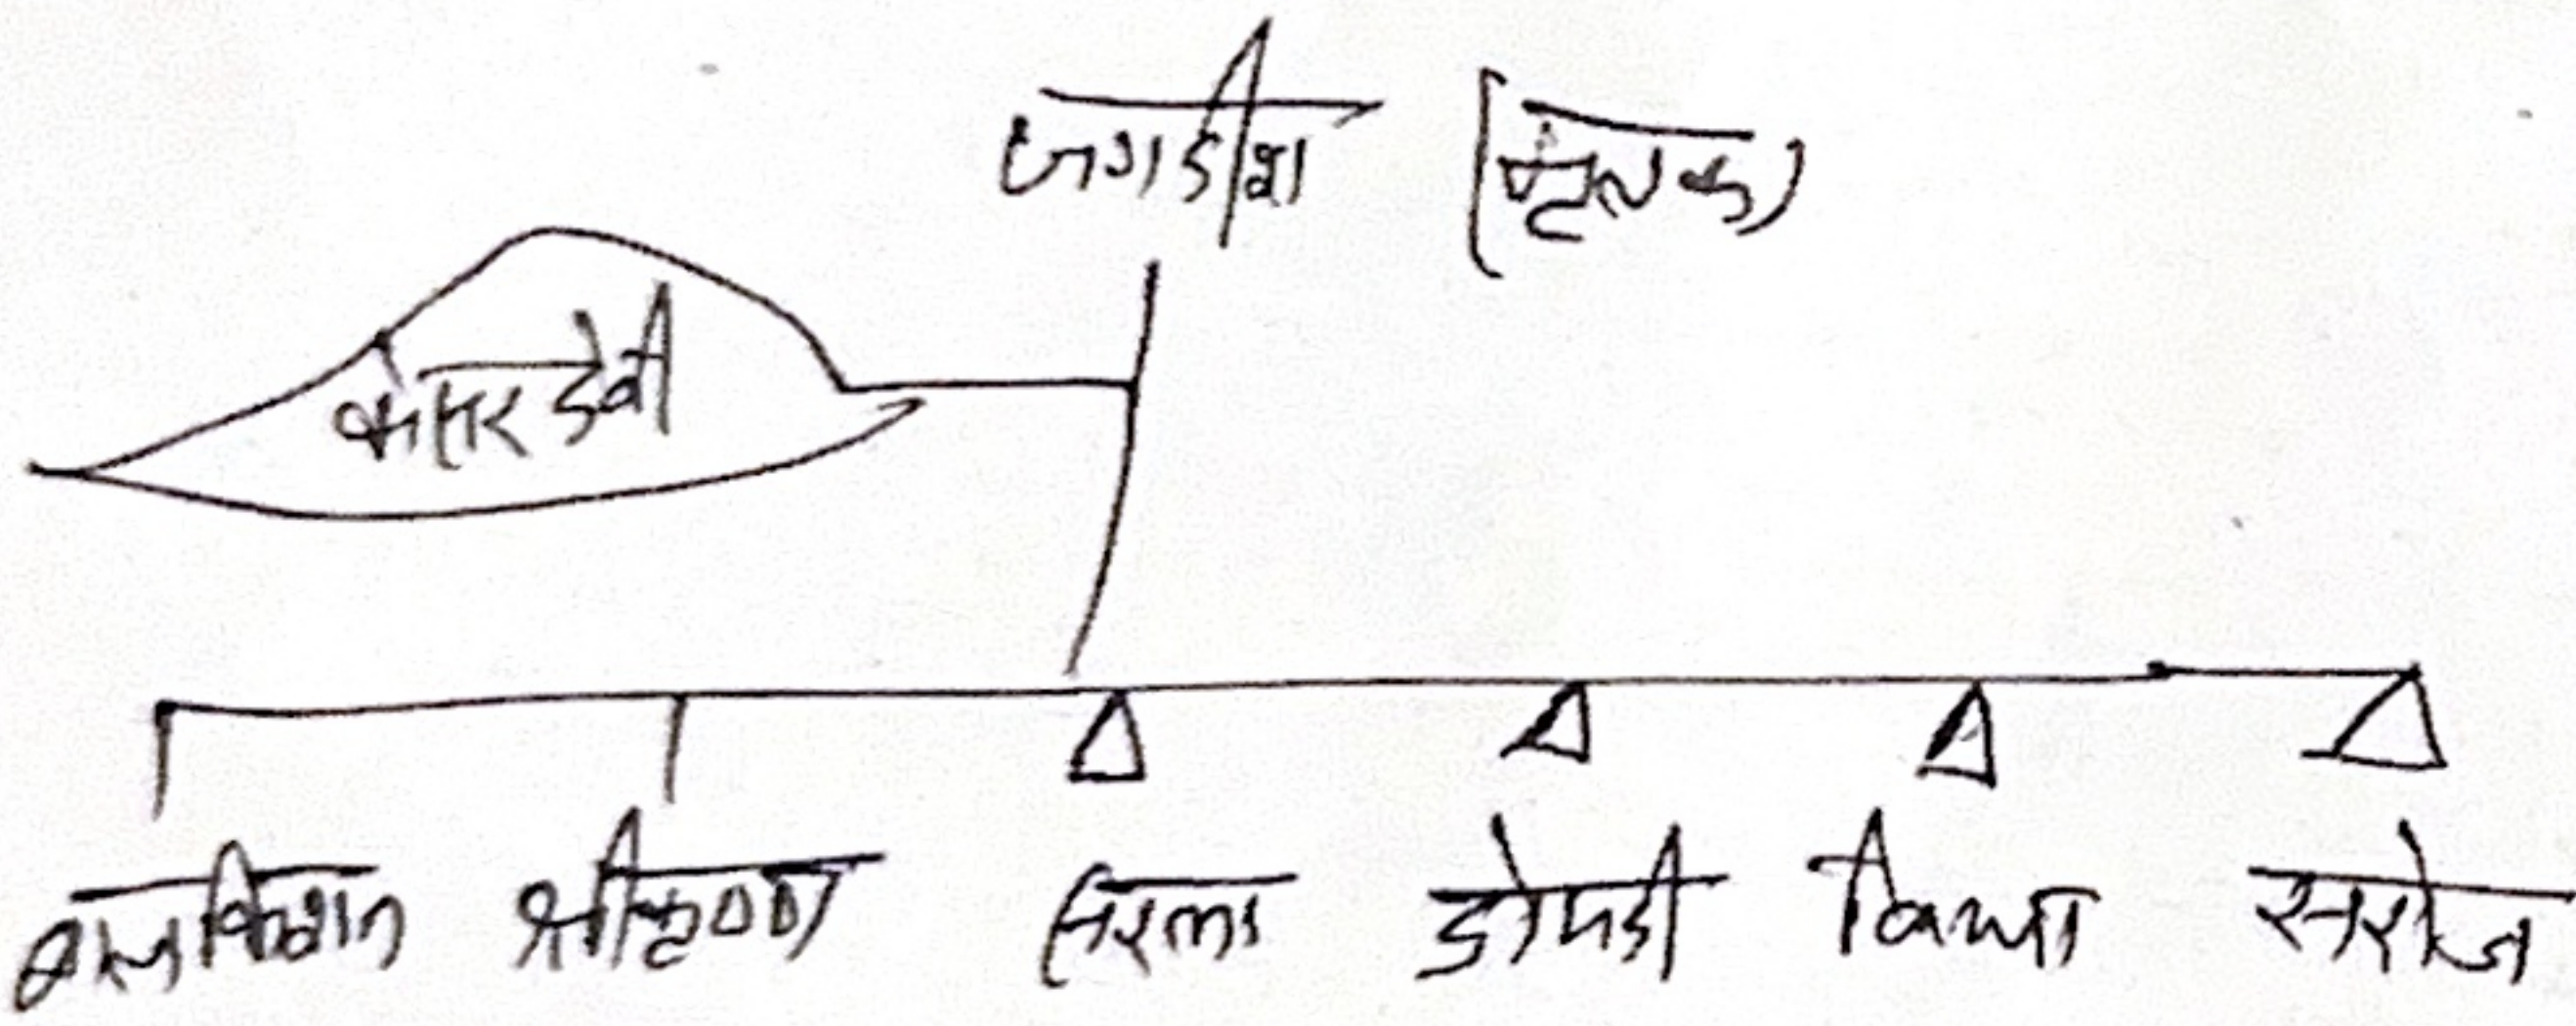 जगदीश (मृतक)
केसर देवी
बालकिशन श्रीकृष्ण सरला द्रोपदी विद्या सरोज